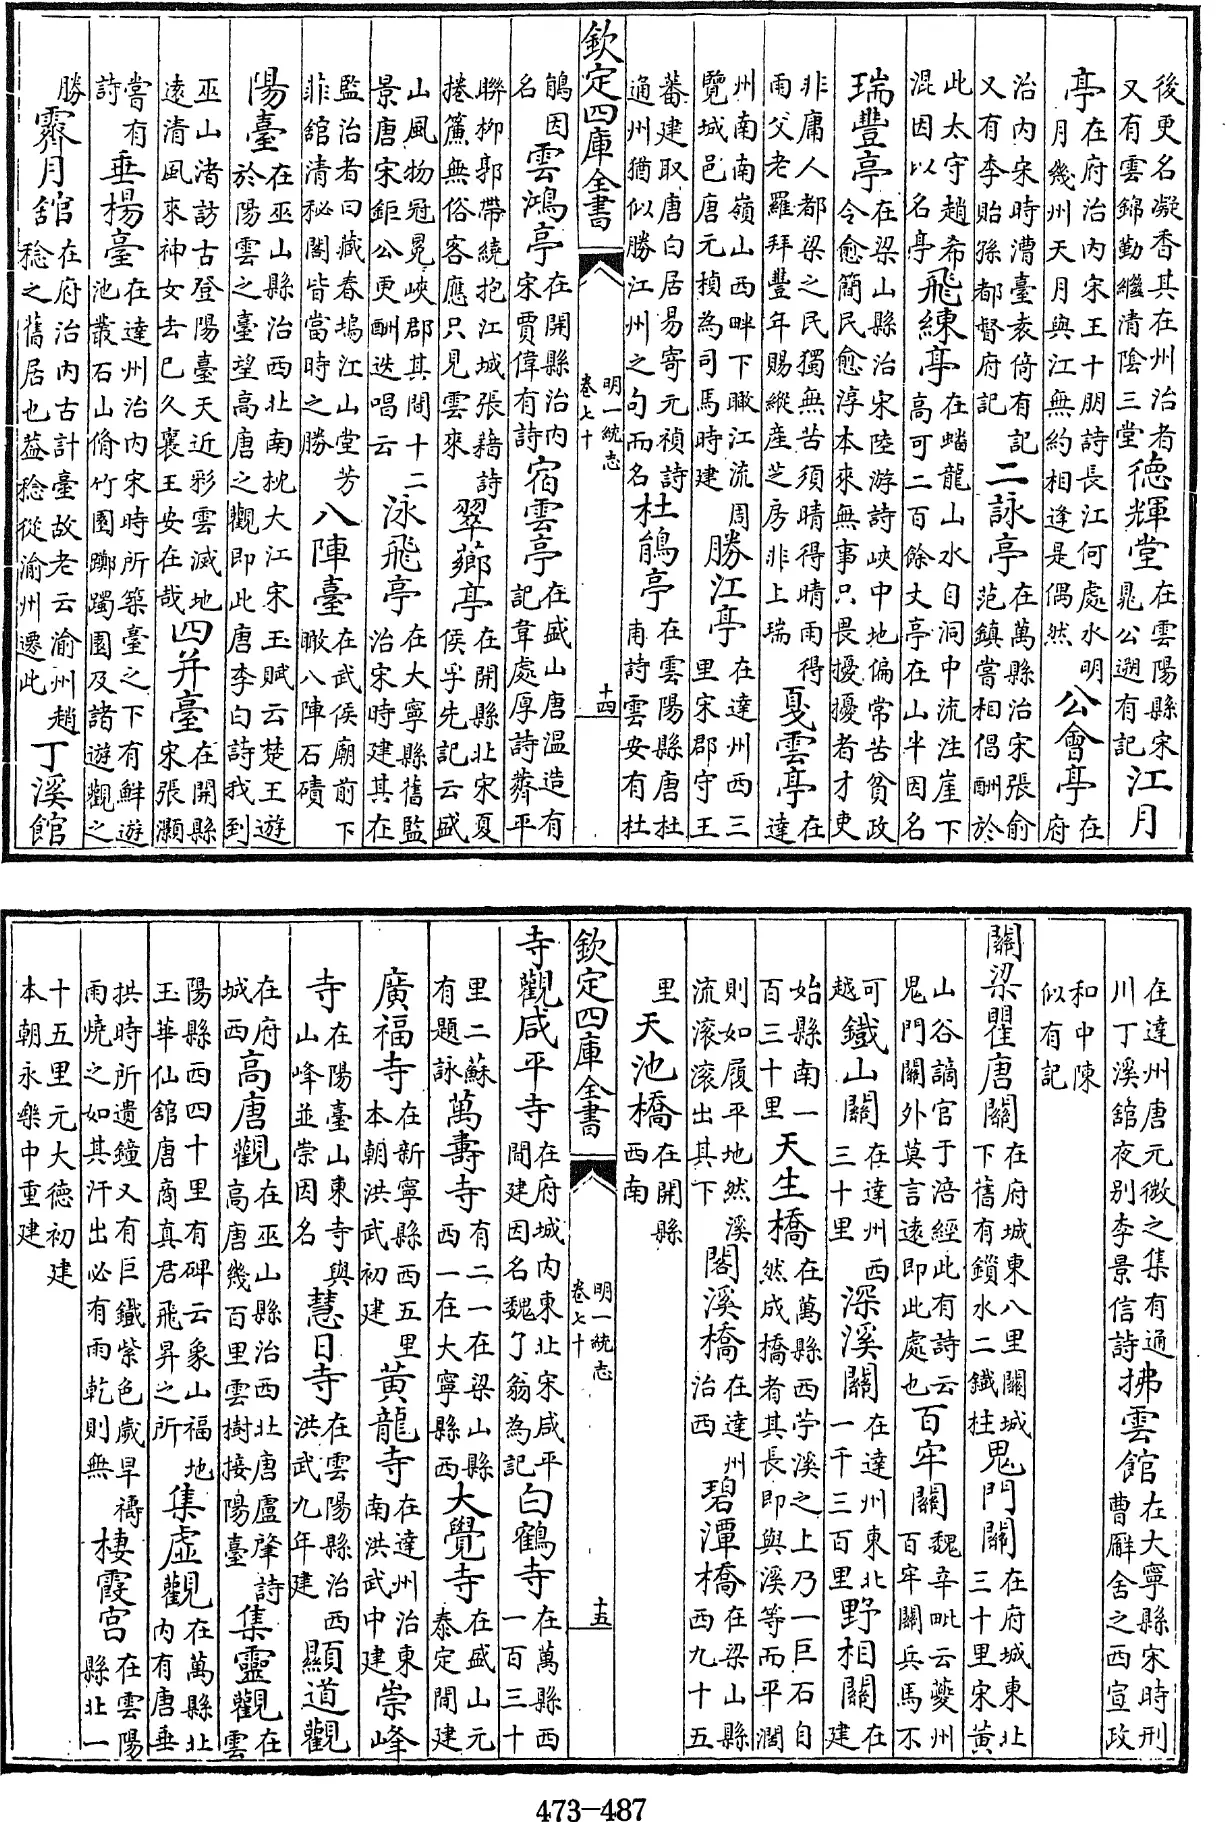 後更名凝香其在州治者又有雲錦勤繼清陰三堂德輝堂在雲陽縣宋晁公遡有記江月
亭在府治内宋王十朋詩長江何處水明月幾州天月與江無約相逢是偶然公會亭在府
治内宋時漕臺袁倚有記又有李貽孫都督府記二詠亭在萬縣治宋張俞范鎮嘗相倡酬於
此太守趙希混因以名亭飛練亭在蟠龍山水自洞中流注崖下高可二百餘丈亭在山半因名
瑞豐亭在梁山縣治宋陸游詩峽中地偏常苦貧政令愈簡民愈淳本來無事只畏擾擾者才吏
非庸人都梁之民獨無苦須晴得晴雨得雨父老羅拜豐年賜縱産芝房非上瑞戛雲亭在達
州南南嶺山西畔下瞰江流周覽城邑唐元稹為司馬時建勝江亭在達州西三里宋郡守王
蕃建取唐白居易寄元稹詩通州猶似勝江州之句而名杜鵑亭在雲陽縣唐杜甫詩雲安有杜
欽定四庫全書
明一統志
卷七十
十四
鵑因名雲鴻亭在開縣治内宋賈偉有詩宿雲亭在盛山唐温造有記韋處厚詩薺平
聯柳郭帶繞抱江城張籍詩捲簾無俗客應只見雲來翠薌亭在開縣北宋夏侯孚先記云盛
山風物冠冕峽郡其間十二景唐宋鉅公更酬迭唱云泳飛亭在大寧縣舊監治宋時建其在
監治者曰藏春塢江山堂芳菲館清秘閣皆當時之勝八陣臺在武侯廟前下瞰八陣石磧
陽臺在巫山縣治西北南枕大江宋玉賦云楚王遊於陽雲之臺望高唐之觀即此唐李白詩我到
巫山渚訪古登陽臺天近彩雲滅地遠清風來神女去已久襄王安在哉四并臺在開縣宋張灝
嘗有詩垂楊臺在達州治内宋時所築臺之下有鮮遊池叢石山脩竹園躑躅園及諸遊觀之
勝霽月館在府治内古計臺故老云渝州趙稔之舊居也葢稔從渝州遷此丁溪館
在達州唐元微之集有通川丁溪館夜别李景信詩拂雲館在大寧縣宋時刑曹廨舍之西宣政
和中陳似有記
關梁瞿唐關在府城東八里關城下舊有鎖水二鐵柱鬼門關在府城東北三十里宋黃
山谷謫官于涪經此有詩云鬼門關外莫言遠即此處也百牢關魏辛毗云夔州百牢關兵馬不
可越鐵山關在達州西三十里深溪關在達州東北一千三百里野相關在建
始縣南一百三十里天生橋在萬縣西苧溪之上乃一巨石自然成橋者其長即與溪等而平濶
則如履平地然溪流滚滚出其下閣溪橋在達州治西碧潭橋在梁山縣西九十五
里天池橋在開縣西南
欽定四庫全書
明一統志
卷七十
十五
寺觀咸平寺在府城内東北宋咸平間建因名魏了翁為記白鶴寺在萬縣西一百三十
里二蘇有題詠萬壽寺有二一在梁山縣西一在大寧縣西大覺寺在盛山元泰定間建
廣福寺在新寧縣西五里本朝洪武初建黃龍寺在達州治東南洪武中建崇峰
寺在陽臺山東寺與山峰並崇因名慧日寺在雲陽縣治西洪武九年建顯道觀
在府城西高唐觀在巫山縣治西北唐盧肇詩高唐幾百里雲樹接陽臺集靈觀在雲
陽縣西四十里有碑云象山福地玉華仙館唐商真君飛昇之所集虛觀在萬縣北内有唐垂
拱時所遺鐘又有巨鐵紫色歲旱禱雨燒之如其汗出必有雨乾則無棲霞宮在雲陽縣北一
十五里元大德初建本朝永樂中重建
473-487